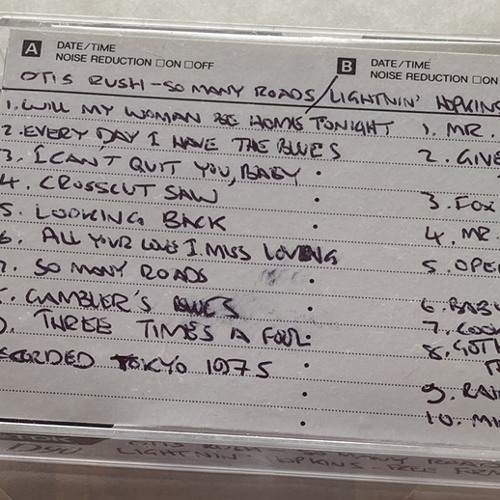 A DATE/TIME
NOISE REDUCTION ON OFF
B DATE/TIME
NOISE REDUCTION ON
OTIS RUSH - SO MANY ROADS / LIGHTNIN' HOPKINS
1. WILL MY WOMAN BE HOME TONIGHT
2. EVERY DAY I HAVE THE BLUES
3. I CAN'T QUIT YOU, BABY
4. CROSSCUT SAW
5. LOOKING BACK
6. ALL YOUR LOVE I MISS LOVING
7. SO MANY ROADS
GAMBLER'S BLUES
THREE TIMES A FOOL
RECORDED TOKYO 1975
1. MR.
2. GIVE
3. FOX
4. MR.
5. OPE
6. BAB
7. COO
8. GOT
9. RA
10. MI
TDK
D90
OTIS RUSH - SO MANY ROADS
LIGHTNIN' HOPKINS - FREE FO